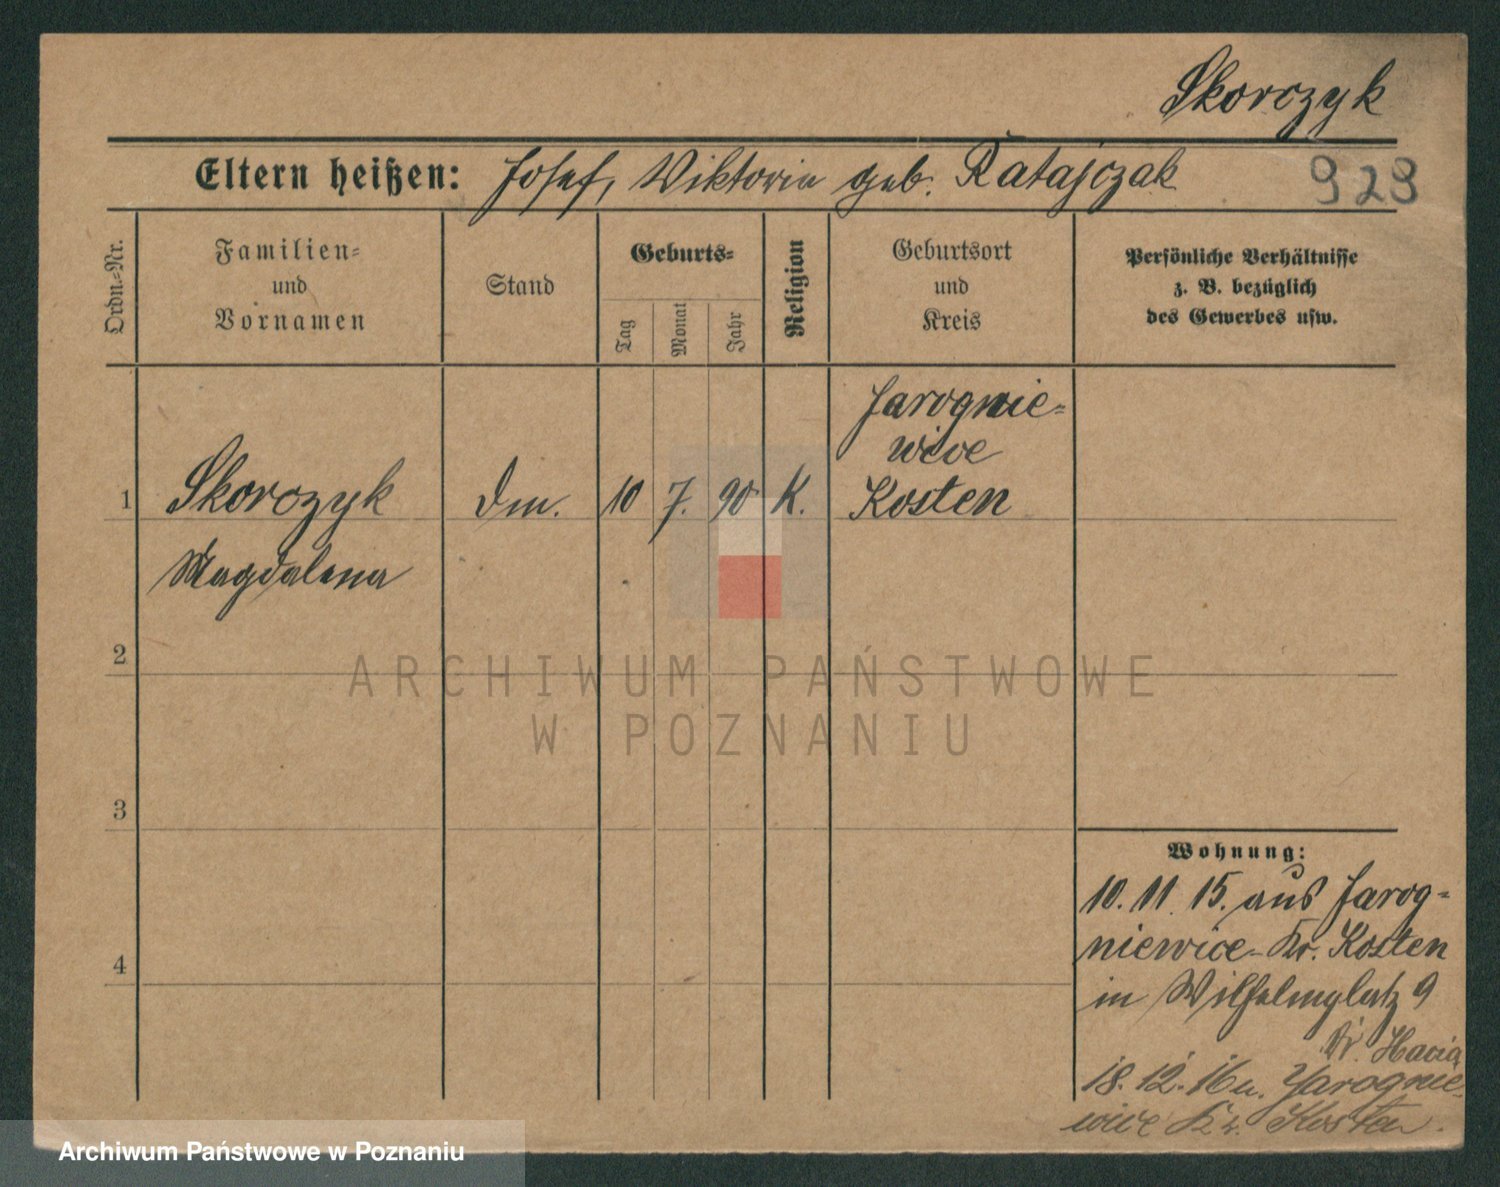 Skorczyk
Eltern heißen: Josef, Viktoria geb. Ratajczak
929
Ordn.-Nr.
Familien-
und
Vornamen
Stand
Geburts-
Tag
Monat
Jahr
Religion
Geburtsort
und
Kreis
Persönliche Verhältnisse
z. B. bezüglich
des Gewerbes usw.
Jarognie-
wice
1 Skorczyk Dm. 10 7. 90 K. Kosten
Magdalena
2
3
4
Wohnung:
10. 11. 15. aus Jarog-
niewice Kr. Kosten
in Wilhelmplatz 9
Dr. Hacia
18. 12. 16 n. Jarognie-
wice Kr. Kosten.
ARCHIWUM PAŃSTWOWE
W POZNANIU
Archiwum Państwowe w Poznaniu